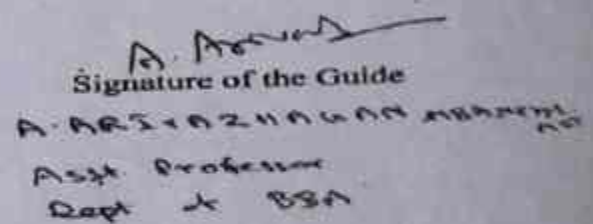 A.
Signature of the Guide
A. ARIVAZHAGAN
Asst. Professor
Dept of BBA